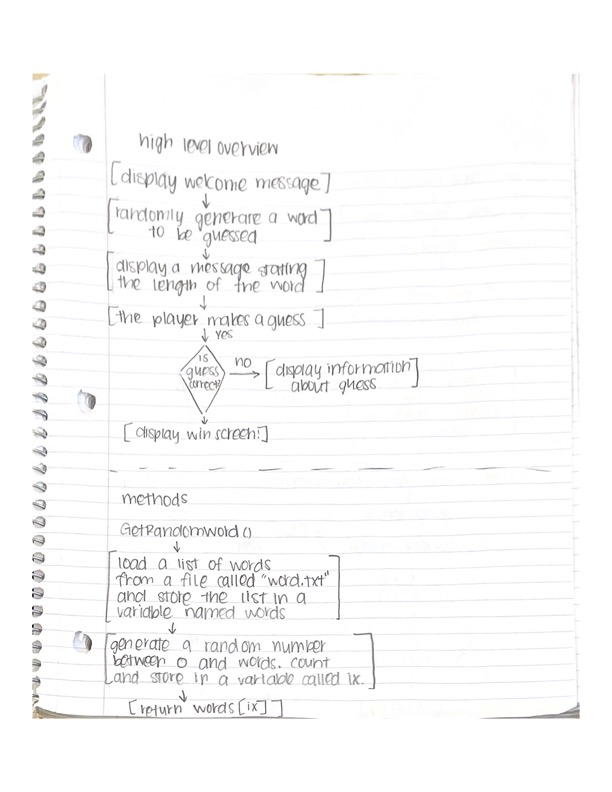 high level overview
[display welcome message]
[randomly generate a word
to be guessed]
[display a message stating
the length of the word]
[the player makes a guess]
yes
is
guess
correct?
no
[display information
about guess]
[display win screen!]
methods
GetRandomWord()
[load a list of words
from a file called "word.txt"
and store the list in a
variable named words]
[generate a random number
between 0 and words. count
and store in a variable called ix.]
[return words[ix]]